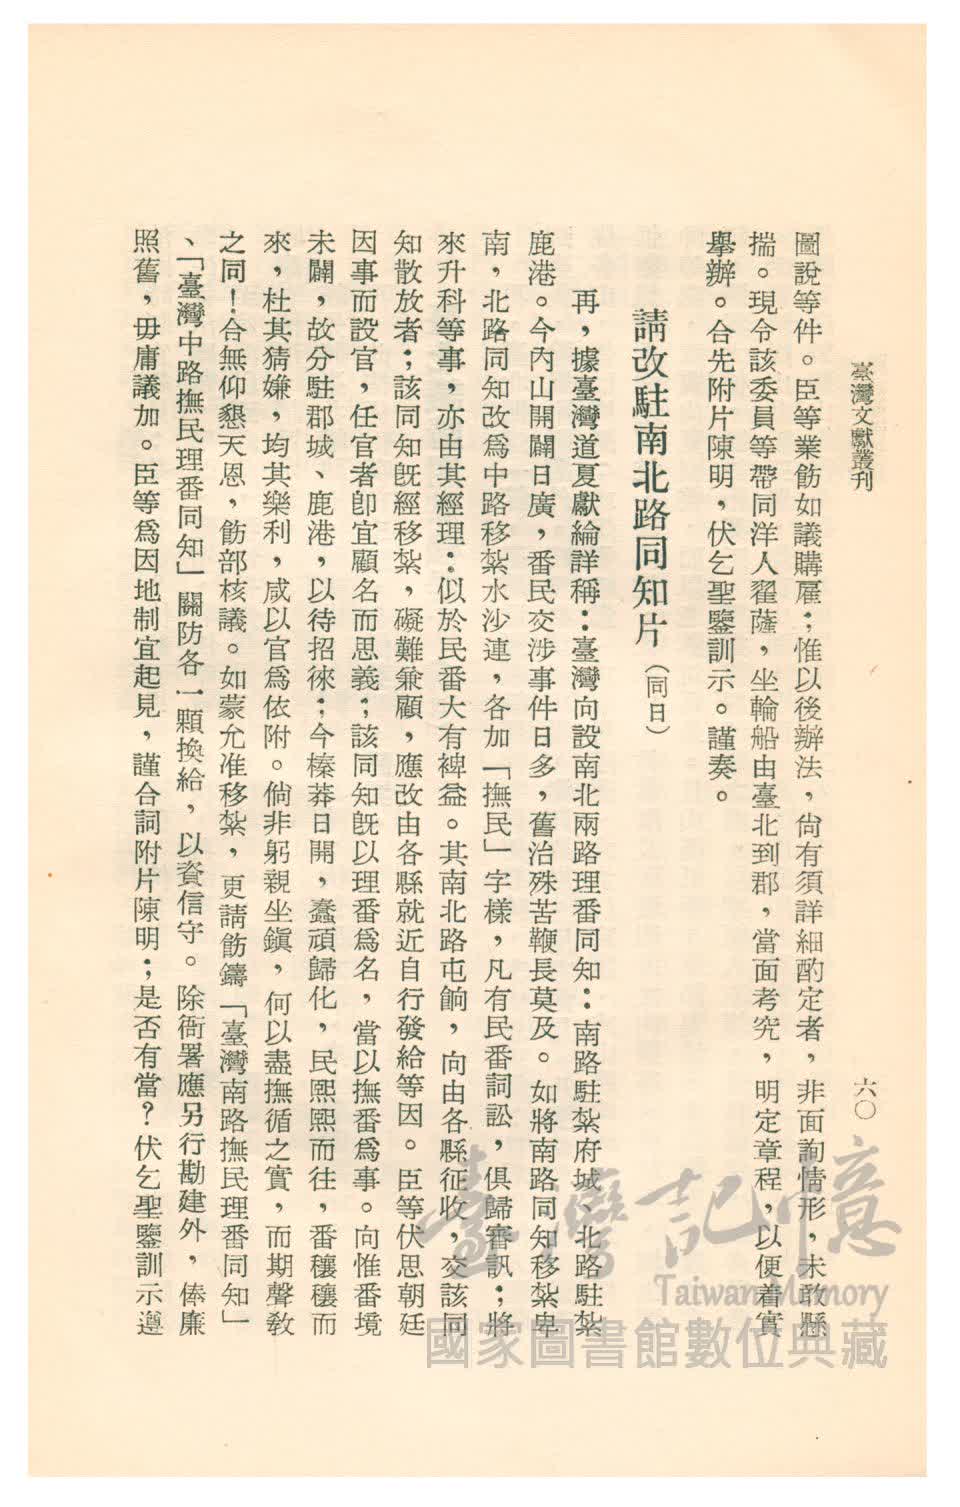 臺灣文獻叢刊
六〇
圖說等件。臣等業飭如議購雇；惟以後辦法，尙有須詳細酌定者，非面詢情形，未敢懸
揣。現令該委員等帶同洋人翟薩，坐輪船由臺北到郡，當面考究，明定章程，以便着實
擧辦。合先附片陳明，伏乞聖鑒訓示。謹奏。
請改駐南北路同知片（同日）
再，據臺灣道夏獻綸詳稱：臺灣向設南北兩路理番同知：南路駐紮府城、北路駐紮
鹿港。今內山開闢日廣，番民交涉事件日多，舊治殊苦鞭長莫及。如將南路同知移紮卑
南，北路同知改爲中路移紮水沙連，各加「撫民」字樣，凡有民番詞訟，俱歸審訊；將
來升科等事，亦由其經理：似於民番大有裨益。其南北路屯餉，向由各縣征收，交該同
知散放者；該同知旣經移紮，礙難兼顧，應改由各縣就近自行發給等因。臣等伏思朝廷
因事而設官，任官者卽宜顧名而思義；該同知旣以理番爲名，當以撫番爲事。向惟番境
未闢，故分駐郡城、鹿港，以待招徠；今榛莽日開，蠢頑歸化，民熙熙而往，番穰穰而
來，杜其猜嫌，均其樂利，咸以官爲依附。倘非躬親坐鎭，何以盡撫循之實，而期聲敎
之同！合無仰懇天恩，飭部核議。如蒙允准移紮，更請飭鑄「臺灣南路撫民理番同知」
、「臺灣中路撫民理番同知」關防各一顆換給，以資信守。除衙署應另行勘建外，俸廉
照舊，毋庸議加。臣等爲因地制宜起見，謹合詞附片陳明；是否有當？伏乞聖鑒訓示遵
臺灣記憶
Taiwan Memory
國家圖書館數位典藏